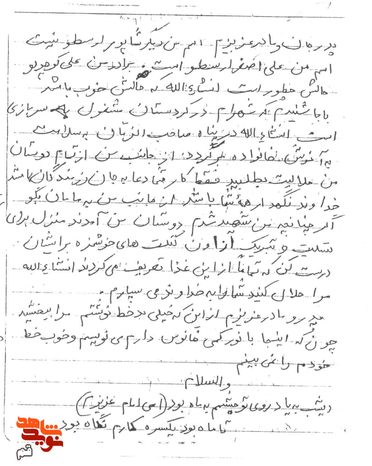 پدر جان و مادر عزیزم. اسم من دیگر شاپور ارسطو نیست
اسم من علی اصغر ارسطو است. برادر من علی کوچولو
حالش چطور است انشاءالله که حالش خوب باشد
باجانشینم که شهرام در کردستان مشغول به سربازی
است انشاءالله در پناه صاحب الزمان به سلامت
به آغوش خانواده برگردد. از جانب من از تمام دوستان
من حلالیت بطلبید فقط کارتان دعا به جان رزمندگان باشد
خداوند نگهدار همه شما باشد. از جانب من به مامان بگو
اگر چنانچه من شهید شدم دوستان من آمدند منزل برای
تسلیت و تبریک از اون کتلت های خوشمزه برایشان
درست کن که تماماً از این غذا تعریف می کردند انشاءالله
مرا حلال کنید شما را به خداوند می سپارم.
پدر و مادر عزیزم از این که خیلی بد خط نوشتم مرا ببخشید
چون که اینجا با نور کمی فانوس دارم می نویسم و خوب خط
خودم را نمی بینم
والسلام
دیشب به یاد روی تو چشمم به ماه بود (امی امام عزیز)
تا ماه بود یکسره کارم نگاه بود
نوید شاهد